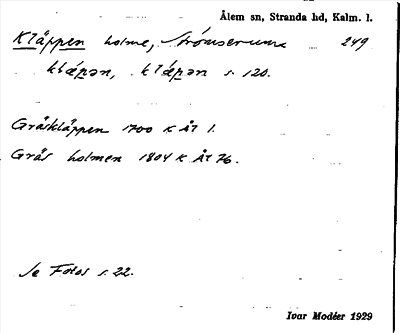 Ålem sn, Stranda hd, Kalm. l.
Kläppen holme, Strömserum 249
klǽpən, klǽpən s. 120.
Gråskläppen 1700 K Åt 1.
Grås holmen 1804 K Åt 76.
Se Foto s. 22.
Ivar Modéer 1929